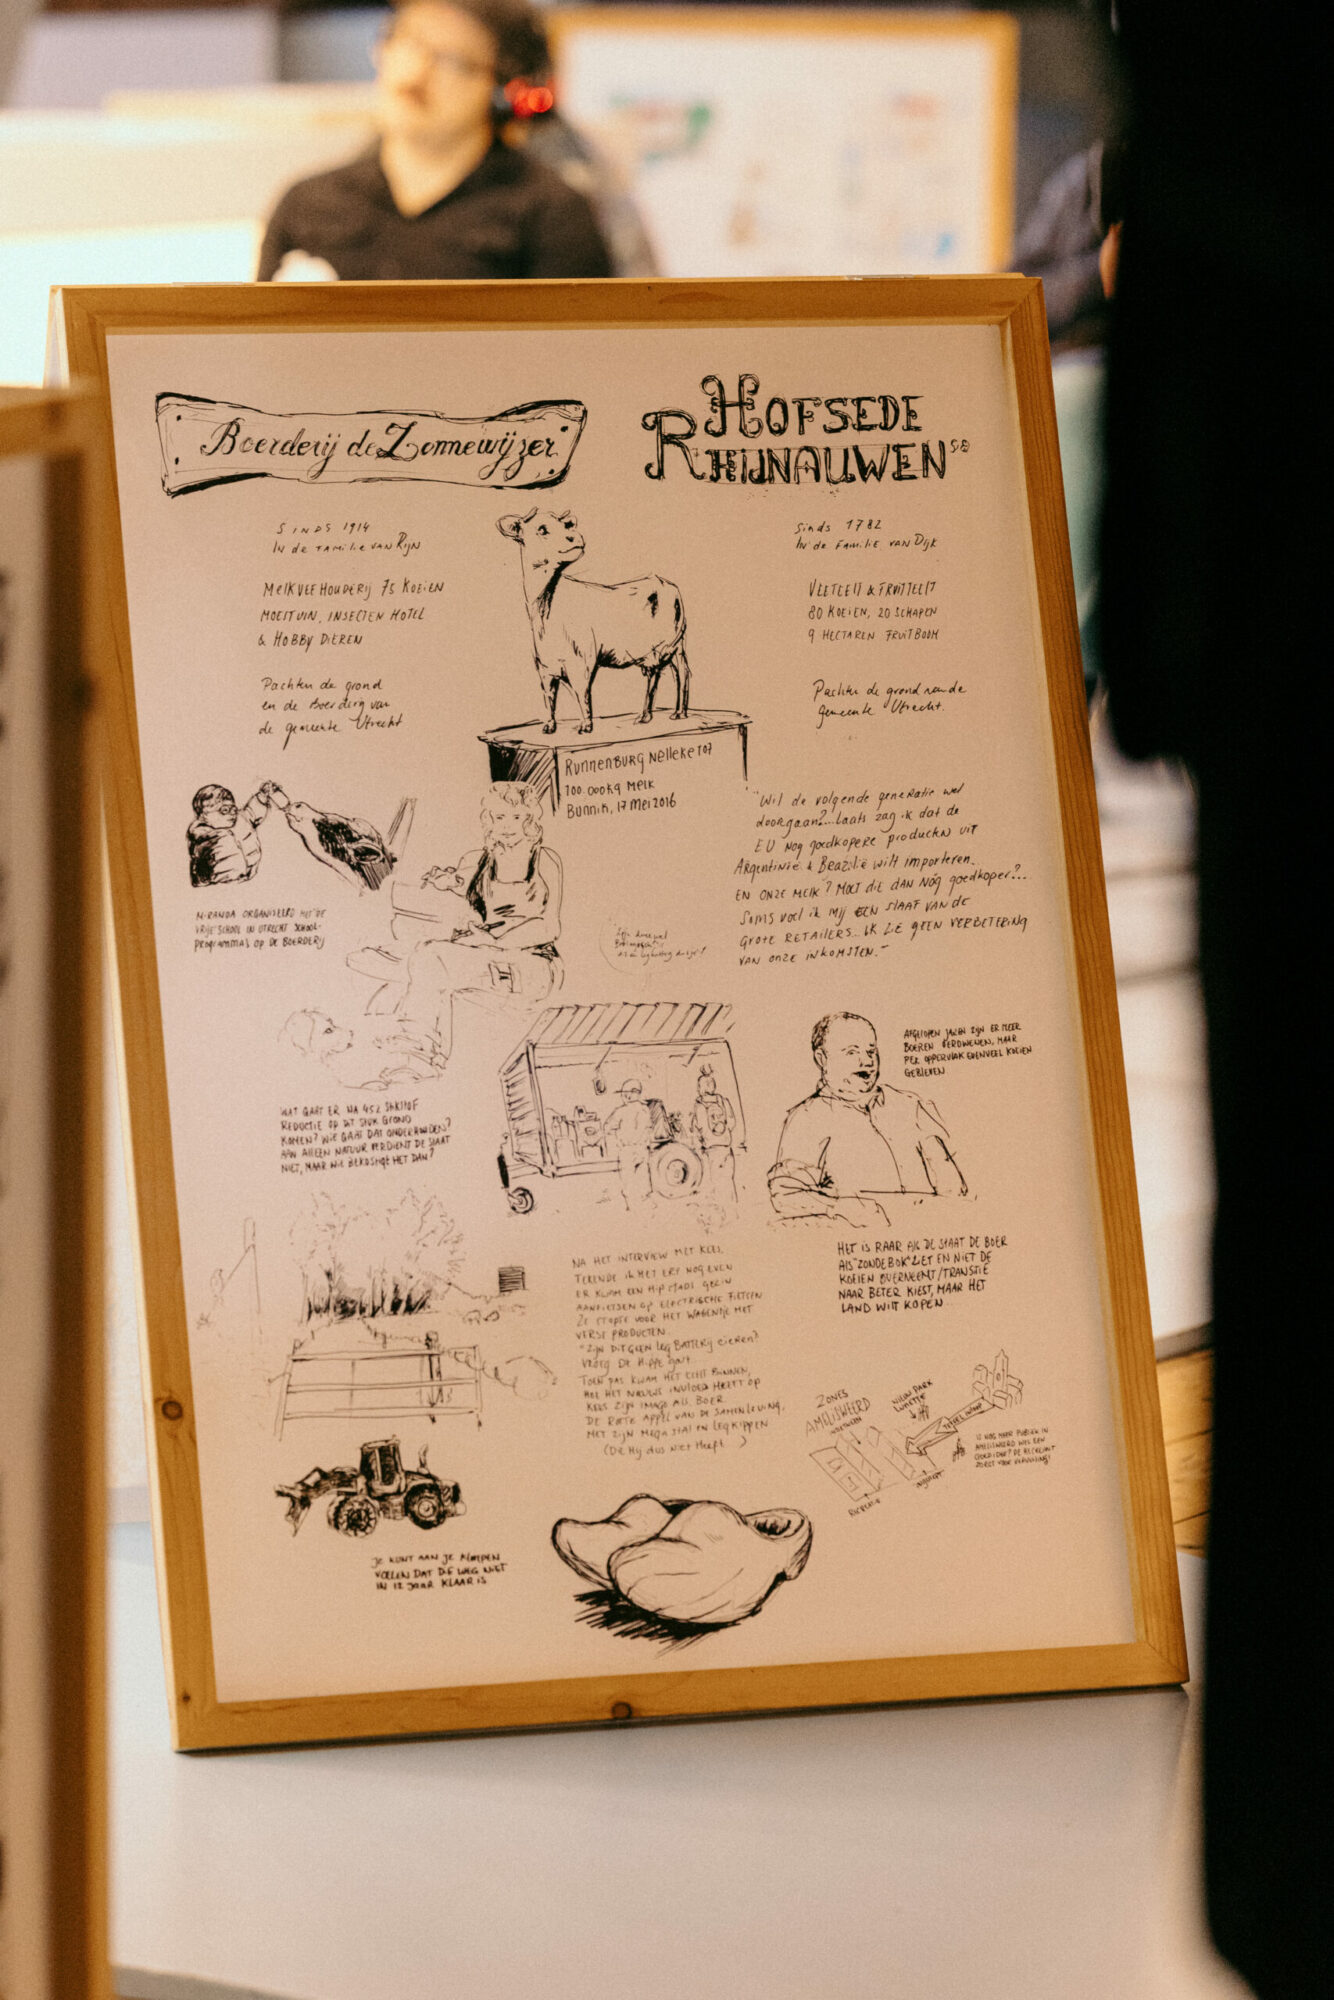 Boerderij de Zonnewijzer
HOFSEDE
RHIJNAUWEN
SINDS 1914
IN de FAMILIE VAN RIJN
MELKVEEHOUDERIJ 75 KOEIEN
MOESTUIN, INSECTEN HOTEL
& HOBBY DIEREN
Pachten de grond
en de Boerderij van
de gemeente Utrecht
Sinds 1782
IN de FAMILIE VAN DIJK
VEETEELT & FRUITTEELT
80 KOEIEN, 20 SCHAPEN
9 HECTAREN FRUITBOOM
Pachten de grond van de
gemeente Utrecht.
RUNNENBURG Nelleke 107
100.000 kg MELK
BUNNIK, 17 MEI 2016
MIRANDA ORGANISEERD MET "DE
VRIJE SCHOOL IN UTRECHT SCHOOL-
PROGRAMMAS OP DE BOERDERIJ
"Wil de volgende generatie wel
doorgaan?...Laats zag ik dat de
EU NOG goedkopere producten uit
ARGENTINIË & BRAZILIË WILT IMPORTEREN.
EN ONZE MELK? MOET DIE DAN NÓG goedkoper?...
SOMS VOEL IK MIJ EEN SLAAF VAN DE
GROTE RETAILERS... IK ZIE GEEN VERBETERING
VAN ONZE INKOMSTEN."
AFGELOPEN JAREN ZIJN ER MEER
BOEREN VERDWENEN, MAAR
PER OPPERVLAK EVENVEEL KOEIEN
GEBLEVEN
WAT GAAT ER NA 45% STIKSTOF
REDUCTIE OP DIT STUK GROND
KOMEN? WIE GAAT DAT ONDERHOUDEN?
AAN ALLEEN NATUUR VERDIENT DE STAAT
NIET, MAAR WIE BEKOSTIGT HET DAN?
HET IS RAAR ALS DE STAAT DE BOER
ALS "ZONDEBOK" ZET EN NIET DE
KOEIEN OVERNEEMT/TRANSITIE
NAAR BETER KIEST, MAAR HET
LAND WILT KOPEN...
NA HET INTERVIEW MET KEES,
TEKENDE IK HET ERF NOG EVEN
ER KWAM EEN HIP STADS GEZIN
AANFIETSEN OP ELECTRISCHE FIETSEN
ZE STOPTE VOOR HET WAGENTJE MET
VERSE PRODUCTEN.
"ZIJN DIT GEEN LEG BATTERIJ EIEREN?"
VROEG DE HIPPE GAST.
TOEN PAS KWAM HET ECHT BINNEN,
HOE HET NIEUWS INVLOED HEEFT OP
KEES ZIJN IMAGO ALS BOER
DE ROTTE APPEL VAN DE SAMENLEVING,
MET ZIJN MEGA STAL EN LEGKIPPEN
(DIE HIJ DUS NIET HEEFT)
ZONES
AMELISWEERD
NIEUW PARK
LUNETTEN
RECREATIE
JE KUNT AAN JE KLOMPEN
VOELEN DAT DIE WEG NIET
IN 12 JAAR KLAAR IS